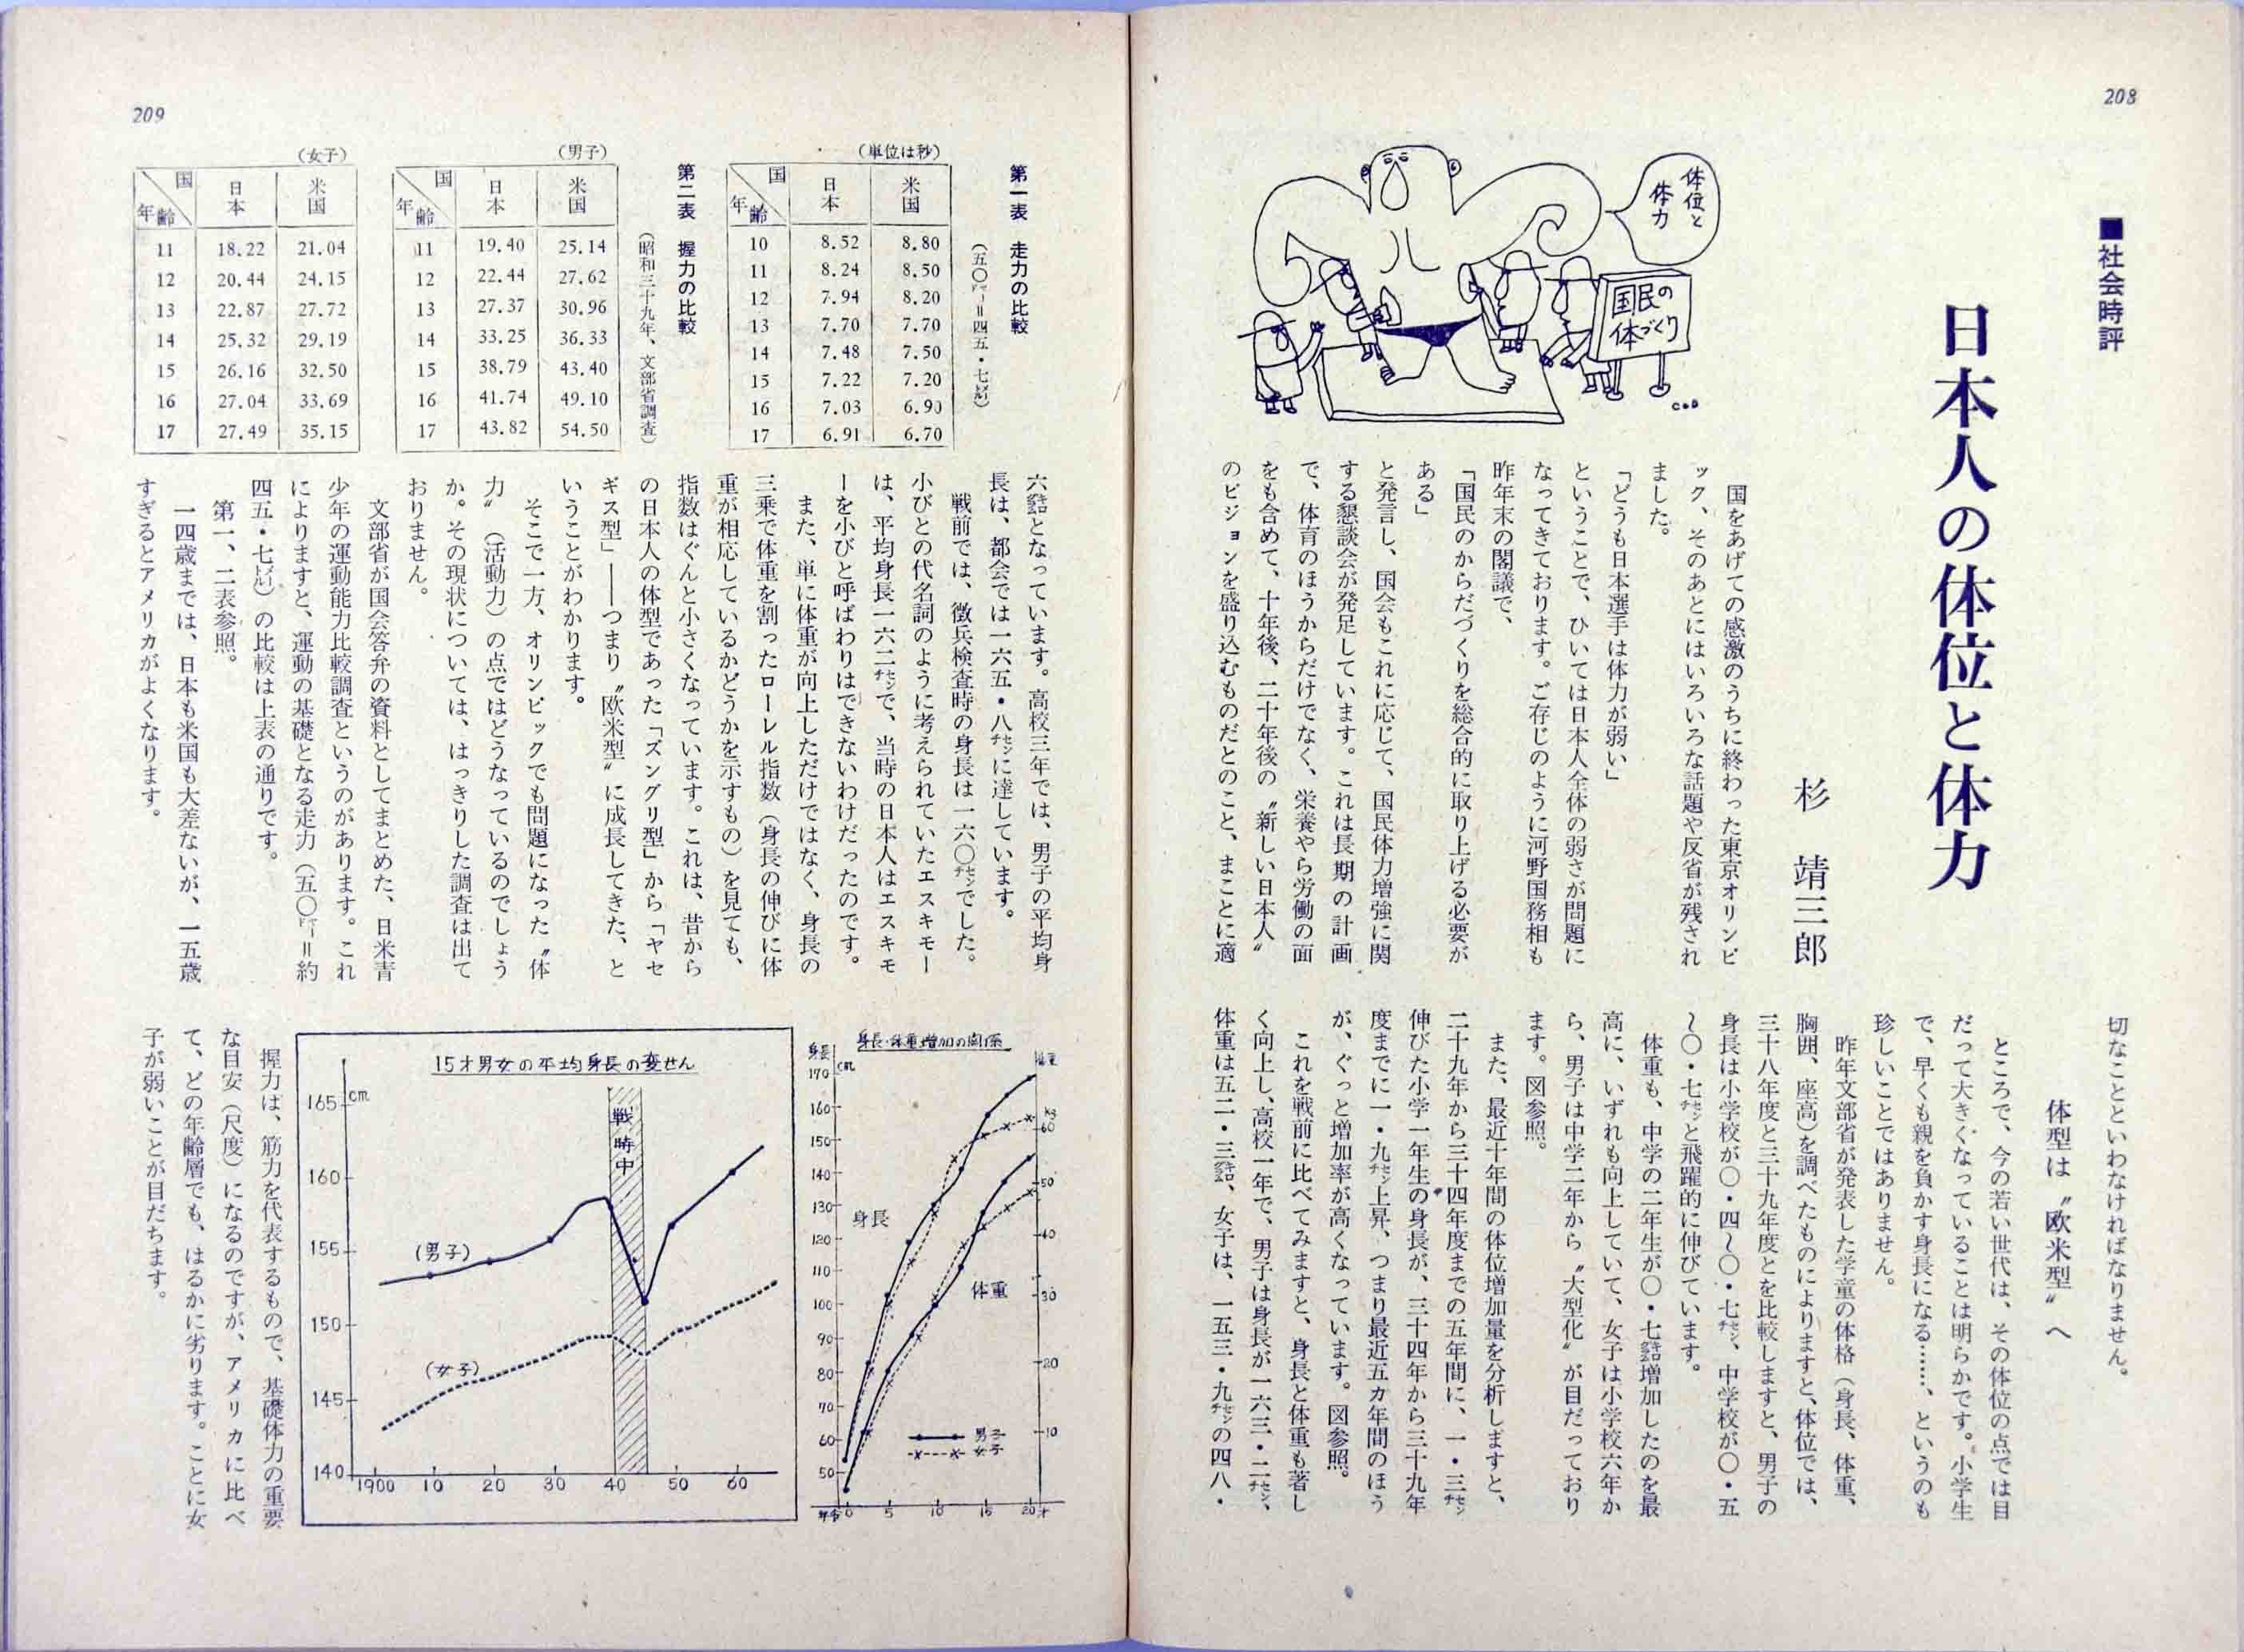 208
■社会時評
日本人の体位と体力
杉　靖三郎
体位と
体力
国民の
体づくり
国をあげての感激のうちに終わった東京オリンピ
ック、そのあとにはいろいろな話題や反省が残され
ました。
「どうも日本選手は体力が弱い」
ということで、ひいては日本人全体の弱さが問題に
なってきております。ご存じのように河野国務相も
昨年末の閣議で、
「国民のからだづくりを総合的に取り上げる必要が
ある」
と発言し、国会もこれに応じて、国民体力増強に関
する懇談会が発足しています。これは長期の計画
で、体育のほうからだけでなく、栄養やら労働の面
をも含めて、十年後、二十年後の〝新しい日本人〟
のビジョンを盛り込むものだとのこと、まことに適
切なことといわなければなりません。
体型は〝欧米型〟へ
ところで、今の若い世代は、その体位の点では目
だって大きくなっていることは明らかです。小学生
で、早くも親を負かす身長になる……、というのも
珍しいことではありません。
昨年文部省が発表した学童の体格（身長、体重、
胸囲、座高）を調べたものによりますと、体位では、
三十八年度と三十九年度とを比較しますと、男子の
身長は小学校が〇・四〜〇・七センチ、中学校が〇・五
〜〇・七センチと飛躍的に伸びています。
体重も、中学の二年生が〇・七キログラム増加したのを最
高に、いずれも向上していて、女子は小学校六年か
ら、男子は中学二年から〝大型化〟が目だっており
ます。図参照。
また、最近十年間の体位増加量を分析しますと、
二十九年から三十四年度までの五年間に、一・三センチ
伸びた小学一年生の身長が、三十四年から三十九年
度までに一・九センチ上昇、つまり最近五カ年間のほう
が、ぐっと増加率が高くなっています。図参照。
これを戦前に比べてみますと、身長と体重も著し
く向上し、高校一年で、男子は身長が一六三・二センチ、
体重は五二・三キログラム、女子は、一五三・九センチの四八・
209
第一表　走力の比較
（五〇ヤード＝四五・七メートル）
（単位は秒）
国　年齢　日本　米国
10　8.52　8.80
11　8.24　8.50
12　7.94　8.20
13　7.70　7.70
14　7.48　7.50
15　7.22　7.20
16　7.03　6.90
17　6.91　6.70
第二表　握力の比較
（昭和三十九年、文部省調査）
（男子）
国　年齢　日本　米国
11　19.40　25.14
12　22.44　27.62
13　27.37　30.96
14　33.25　36.33
15　38.79　43.40
16　41.74　49.10
17　43.82　54.50
（女子）
国　年齢　日本　米国
11　18.22　21.04
12　20.44　24.15
13　22.87　27.72
14　25.32　29.19
15　26.16　32.50
16　27.04　33.69
17　27.49　35.15
六キログラムとなっています。高校三年では、男子の平均身
長は、都会では一六五・八センチに達しています。
戦前では、徴兵検査時の身長は一六〇センチでした。
小びとの代名詞のように考えられていたエスキモー
は、平均身長一六二センチで、当時の日本人はエスキモ
ーを小びと呼ばわりはできないわけだったのです。
また、単に体重が向上しただけではなく、身長の
三乗で体重を割ったローレル指数（身長の伸びに体
重が相応しているかどうかを示すもの）を見ても、
指数はぐんと小さくなっています。これは、昔から
の日本人の体型であった「ズングリ型」から「ヤセ
ギス型」――つまり〝欧米型〟に成長してきた、と
いうことがわかります。
そこで一方、オリンピックでも問題になった〝体
力〟（活動力）の点ではどうなっているのでしょう
か。その現状については、はっきりした調査は出て
おりません。
文部省が国会答弁の資料としてまとめた、日米青
少年の運動能力比較調査というのがあります。これ
によりますと、運動の基礎となる走力（五〇ヤード＝約
四五・七メートル）の比較は上表の通りです。
第一、二表参照。
一四歳までは、日本も米国も大差ないが、一五歳
すぎるとアメリカがよくなります。
身長・体重増加の関係
身長
cm
体重
kg
170
160
150
140
130
120
110
100
90
80
70
60
50
60
50
40
30
20
10
身長
体重
男子
女子
年令 0　5　10　15　20才
15才男女の平均身長の変せん
cm
165
160
155
150
145
140
戦時中
（男子）
（女子）
1900　10　20　30　40　50　60
握力は、筋力を代表するもので、基礎体力の重要
な目安（尺度）になるのですが、アメリカに比べ
て、どの年齢層でも、はるかに劣ります。ことに女
子が弱いことが目だちます。